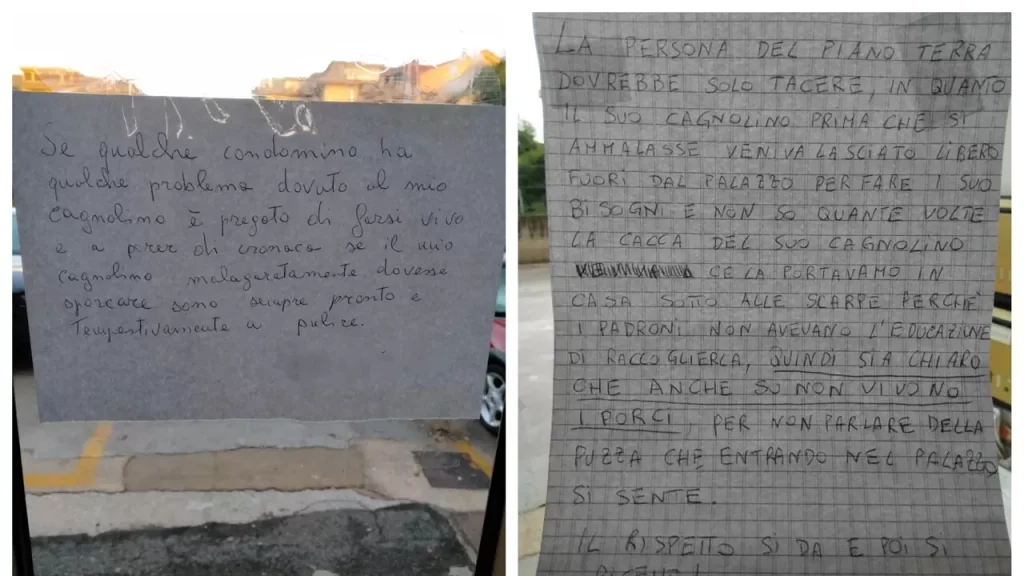 Se qualche condomino ha
qualche problema dovuto al mio
cagnolino è pregato di farsi vivo
e a perer di cronaca se il mio
cagnolino malagaretamente dovesse
sporcare sono sempre pronto e
tempestivamente a pulire.
LA PERSONA DEL PIANO TERRA
DOVREBBE SOLO TACERE, IN QUANTO
IL SUO CAGNOLINO PRIMA CHE SI
AMMALASSE VENIVA LASCIATO LIBERO
FUORI DAL PALAZZO PER FARE I SUO
BISOGNI E NON SO QUANTE VOLTE
LA CACCA DEL SUO CAGNOLINO
CE LA PORTAVAMO IN
CASA SOTTO ALLE SCARPE PERCHÈ
I PADRONI NON AVEVANO L'EDUCAZIONE
DI RACCOGLIERLA, QUINDI SIA CHIARO
CHE ANCHE SU NON VIVONO
I PORCI, PER NON PARLARE DELLA
PUZZA CHE ENTRANDO NEL PALAZZO
SI SENTE.
IL RISPETTO SI DA E POI SI